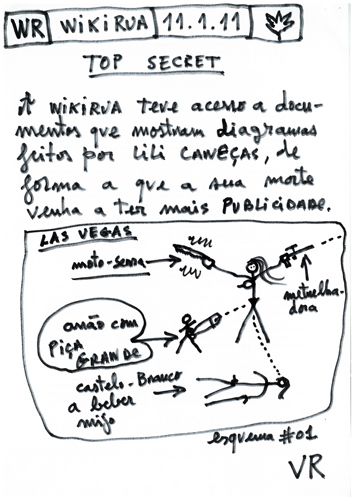 WR WIKIRUA 11.1.11
TOP SECRET
A WIKIRUA teve acesso a docu-
mentos que mostram diagramas
feitos por LILI CANEÇAS, de
forma a que a sua morte
venha a ter mais PUBLICIDADE.
LAS VEGAS
moto-serra
metralha-
dora
anão com
PIÇA
GRANDE
castelo-Branco
a beber
mijo
esquema #01
VR